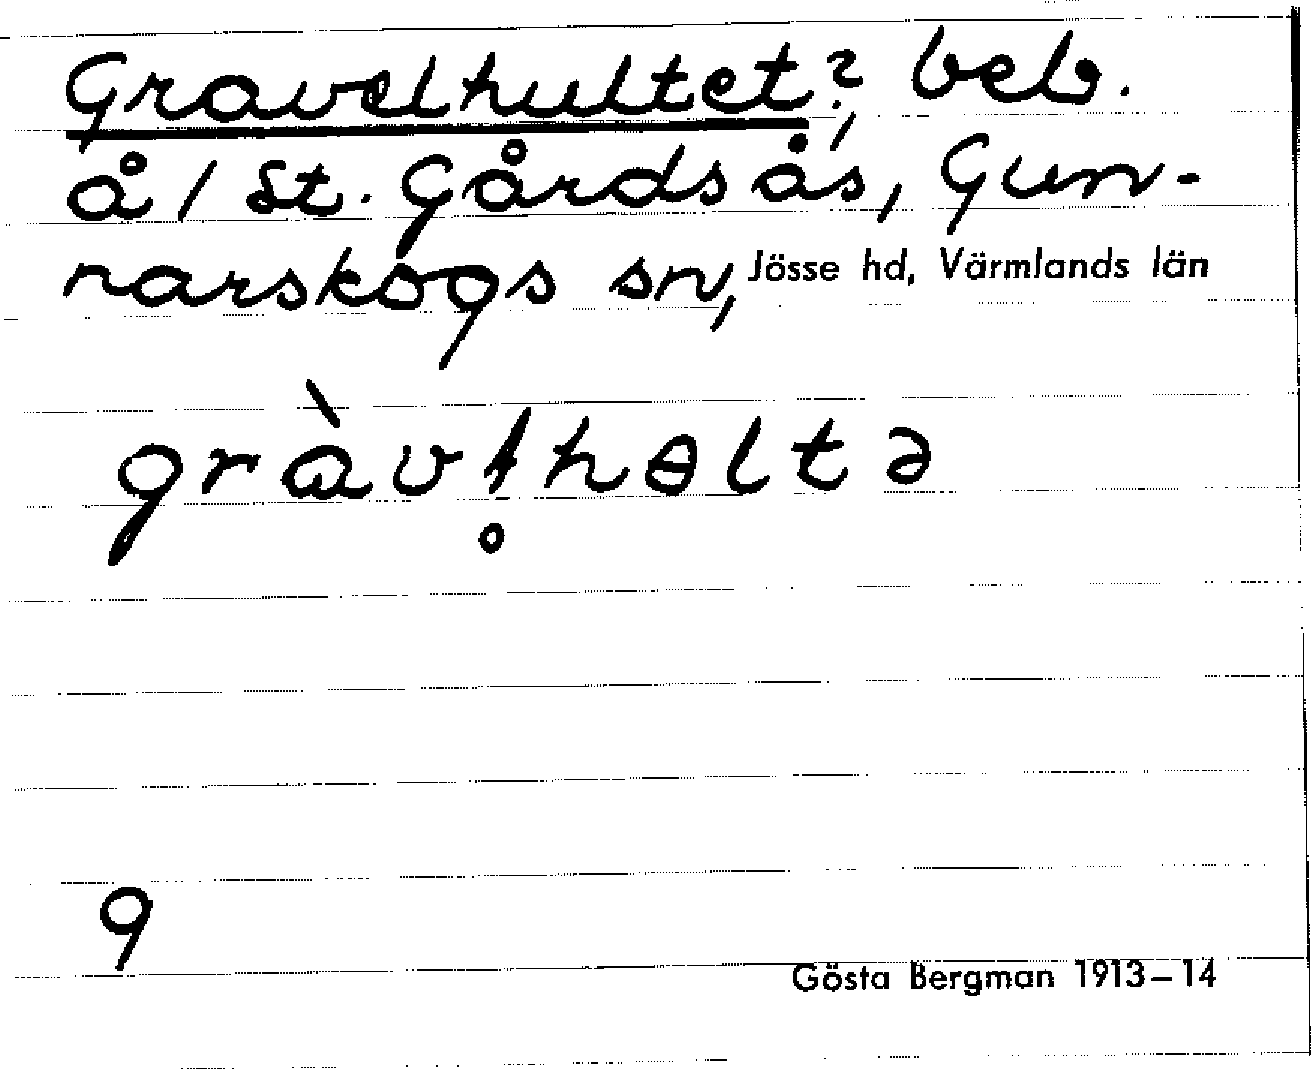 Gravelhultet?, beb.
å / St. Gårdsås, Gun-
narskogs sn, Jösse hd, Värmlands län
gràvl̥hɵltə
9
Gösta Bergman 1913–14